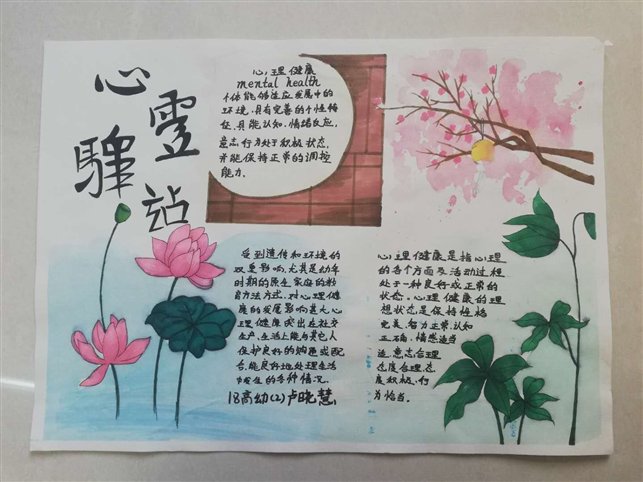 心靈驛站
心理健康
mental health
个体能够适应发展中的
环境,具有完善的个性特
征,且能认知,情绪反应,
意志,行为处于积极状态,
并能保持正常的调控
能力.
受到遗传和环境的
双重影响,尤其是幼年
时期的原生家庭的教
育方法方式,对心理健
康的发展影响甚大心
理健康突出在社交
生产,生活上能与其它人
保护良好的沟通或配
合,能良好地处理生活
中发生的各种情况.
18高幼(2)卢晓慧
心理健康是指心理
的各个方面及活动过程
处于一种良好或正常的
状态。心理健康的理
想状态是保持性格
完美,智力正常,认知
正确,情感适当
适,意志合理
态度合理,态
度积极,行
为恰当。